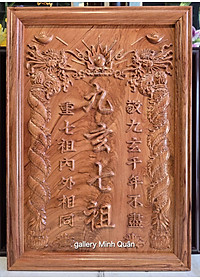 敬九玄千年不盡
九玄七祖
重七祖內外相同
gallery Minh Quân